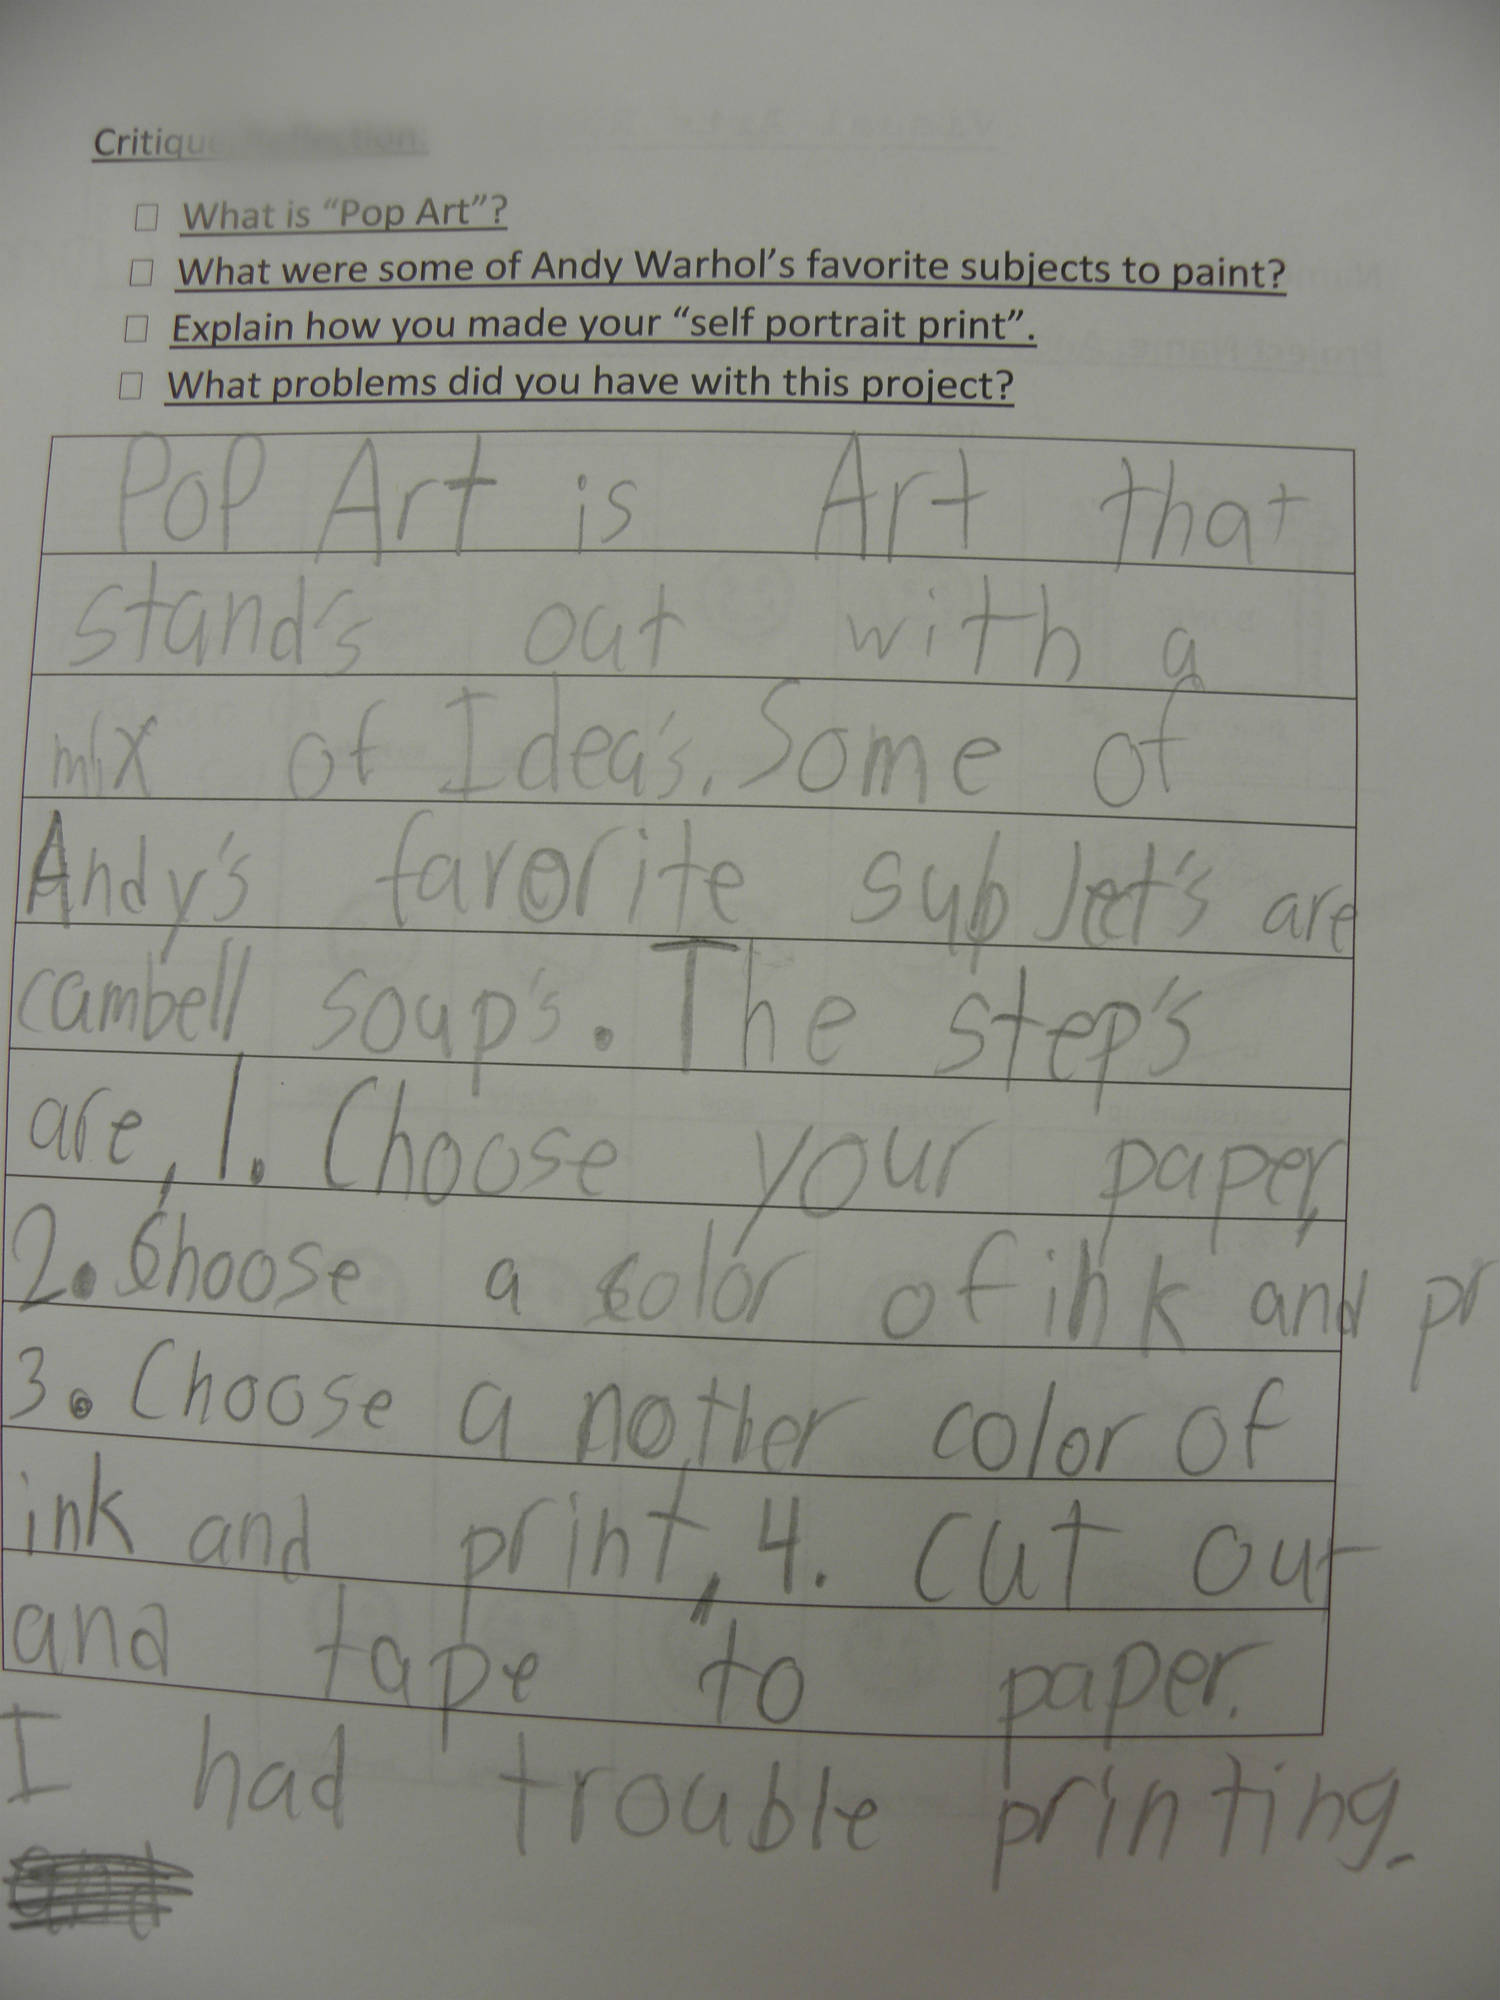 Critique
☐ What is “Pop Art”?
☐ What were some of Andy Warhol’s favorite subjects to paint?
☐ Explain how you made your “self portrait print”.
☐ What problems did you have with this project?
PoP Art is Art that
stand's out with a
mix of Idea's. Some of
Andy's favorite subJet's are
cambell soup's. The step's
are, 1. Choose your paper,
2. Choose a color of ink and pr
3. Choose a nother color of
ink and print, 4. cut out
and tape to paper.
I had trouble printing.